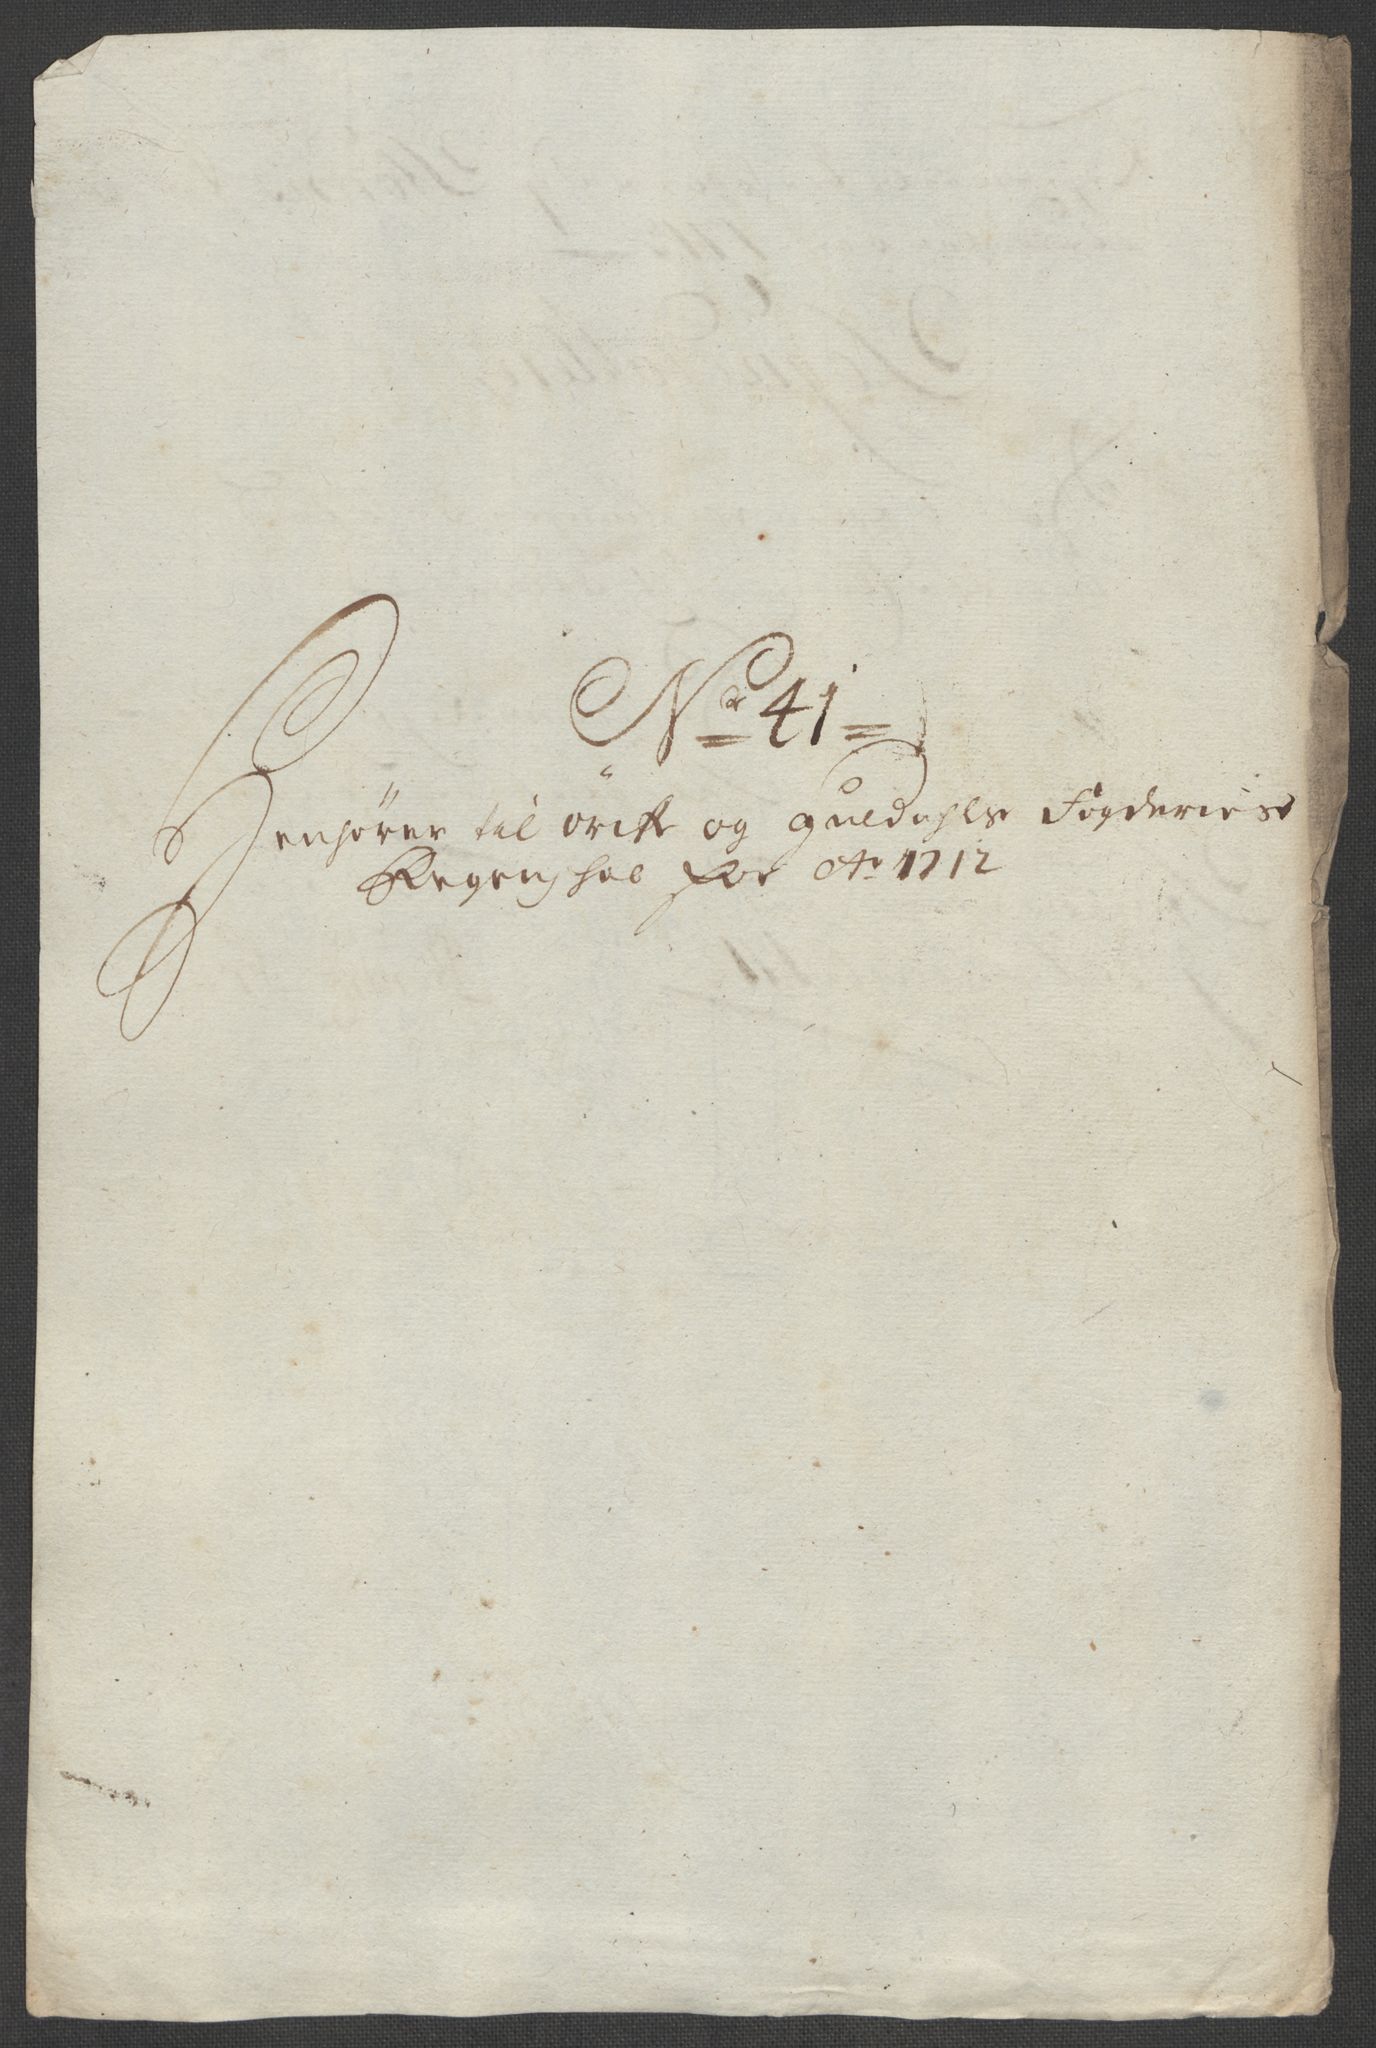 Nr 41
Henhörer til örcke og Guldahls Fogderies
Regenshab for Ao 1712